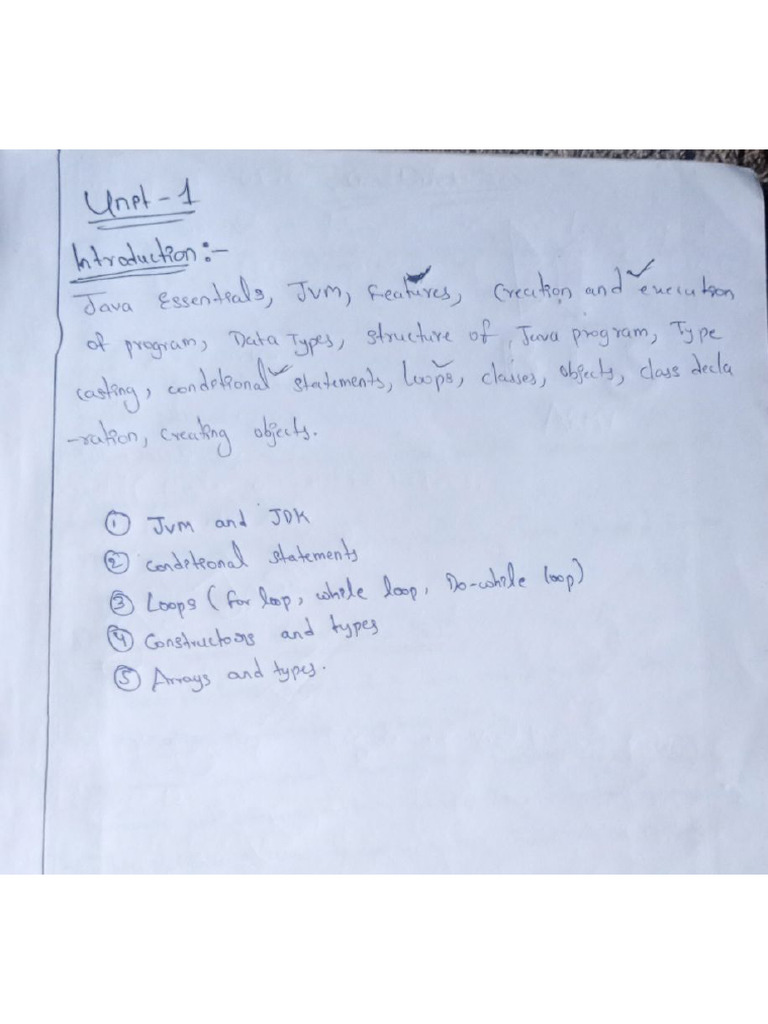 Unit-1
Introduction:-
Java Essentials, JVM, Features, Creation and execution
of program, Data Types, structure of Java program, Type
casting, conditional statements, Loops, classes, objects, class decla
-ration, creating objects.
① JVM and JDK
② conditional statements
③ Loops (for loop, while loop, Do-while loop)
④ Constructors and types
⑤ Arrays and types.